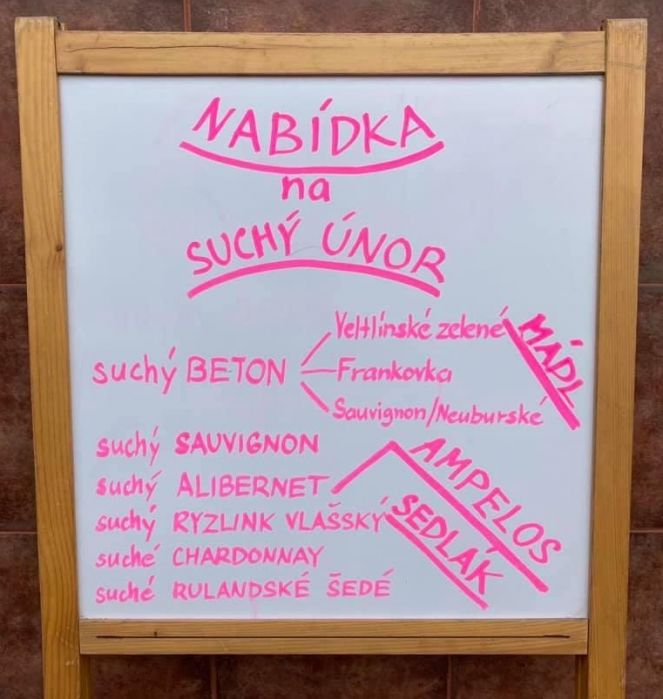 NABÍDKA
na
SUCHÝ ÚNOR
Veltlínské zelené
MÁDL
suchý BETON
Frankovka
Sauvignon/Neuburské
suchý SAUVIGNON
suchý ALIBERNET
AMPELOS
suchý RYZLINK VLAŠSKÝ
SEDLÁK
suché CHARDONNAY
suché RULANDSKÉ ŠEDÉ